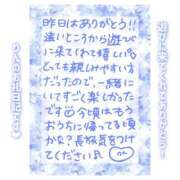 昨日はありがとう!!
遠いところから遊び
に来てくれて嬉しい♪
とっても親しみやすい方
だったので、一緒に
いてすごく楽しかった
です▽今頃はもう
おうちに帰ってる頃
かな?長旅気をつけ
てくださいね♪
遊びに来てくれてありがとう!